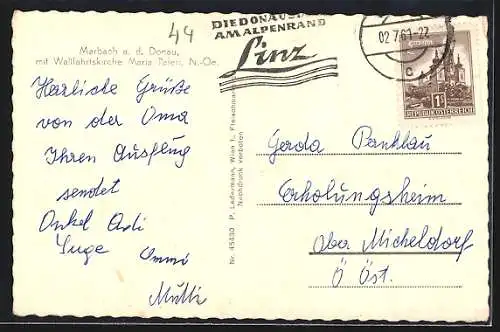 44
DIE DONAUSTADT
AM ALPENRAND
Linz
02.7.61-22
c
1S
REPUBLIK ÖSTERREICH
Marbach a. d. Donau,
mit Wallfahrtskirche Maria Taferl, N.-Oe.
Herzliche Grüße
von der Oma
Ihren Ausflug
sendet
Onkel
Inge Ommi
Mutti
Nr. 45430 P. Ledermann, Wien I., Fleischmarkt
Nachdruck verboten
Gerda Panklau
Erholungsheim
Ober Micheldorf
Ö Öst.